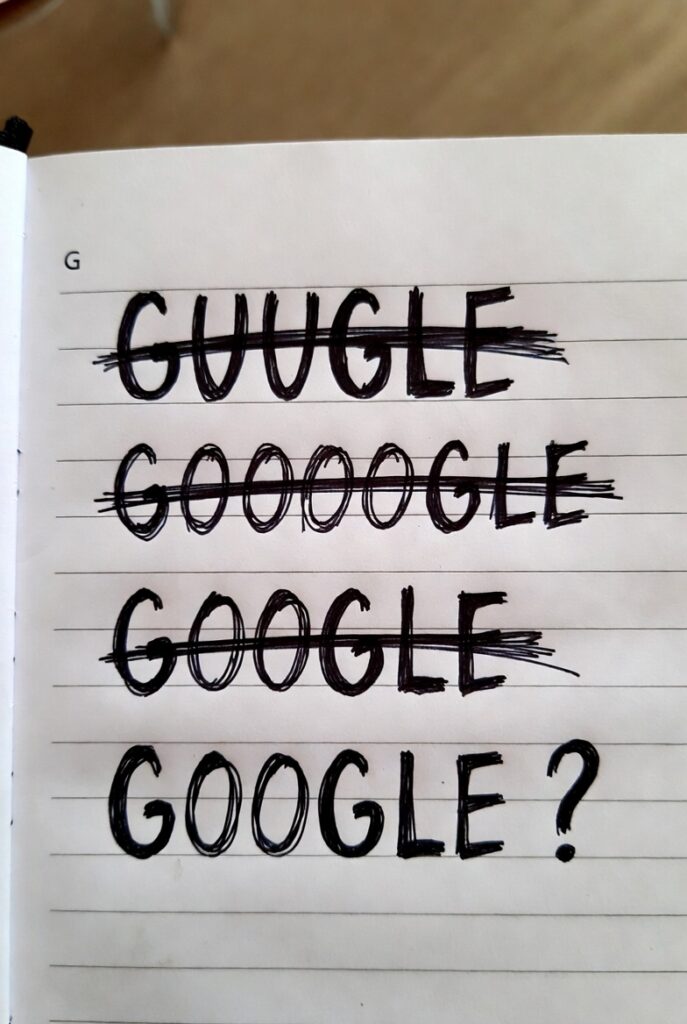 G
GUUGLE
GOOOOGLE
GOOGLE
GOOGLE?